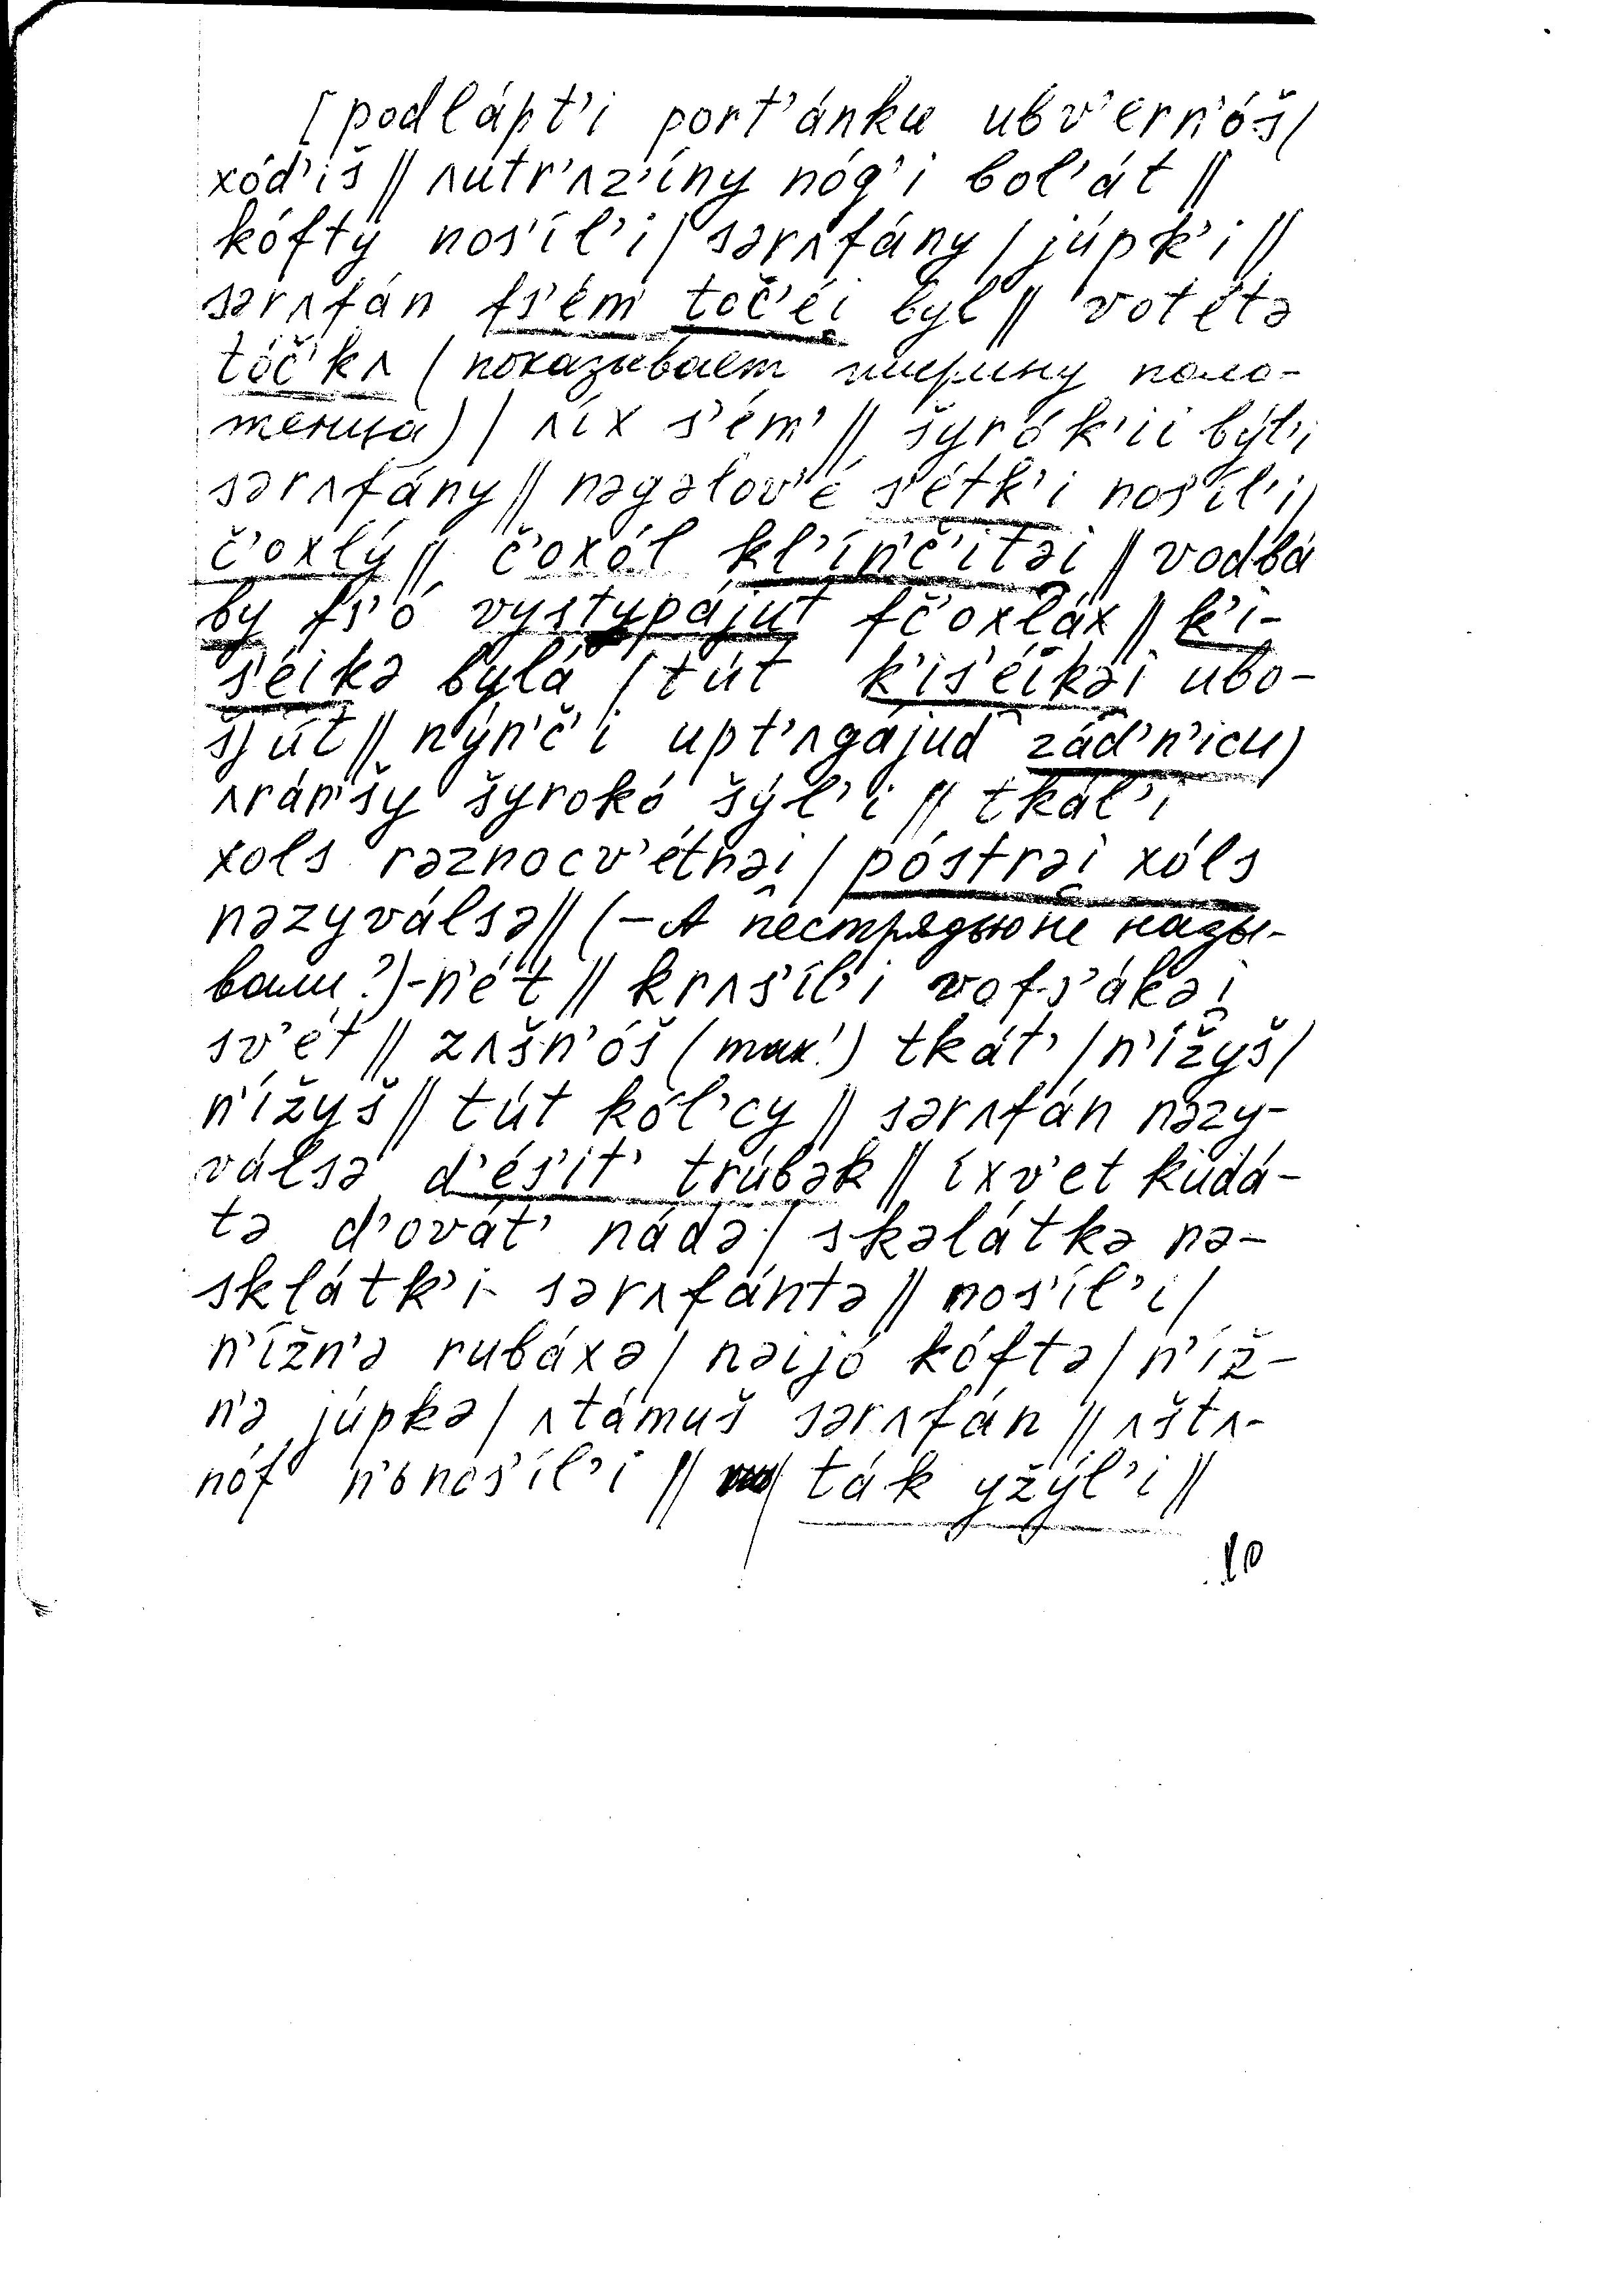 [podlápt’i port’ánku ubv’ern’óš/
xód’iš // ʌutr’ʌz’íny nóg’i bol’át //
kófty nos’íl’i / sərʌfány / júpk’i //
sərʌfán fs’ém toč’éi̯ byl // vot éta
tóč’kʌ (показывает ширину поло-
тенца) / ʌíx s’ém’ // šyrók’ii býl’i
sərʌfány // nəgəlov’é s’étk’i nos’íl’i /
č’oxlý // č’oxól kl’ín’č’itəi̯ // vodbá
by fs’ó vystypájut fč’oxláx // k’i-
s’éi̯kə bylá / tút k’is’éi̯kəi̯ ubo-
šjút // nýn’č’i upt’ʌgájud zád’n’icu /
ʌrán’šy šyrokó šýl’i // tkál’i
xols rəznocv’étnəi̯ / póstrəi̯ xóls
nəzyválsə // (– А пестрядью не назы-
вали?) - n’ét // krʌs’íl’i vofs’ákəi̯
sv’ét // zʌšn’óš (так!) tkát’ / n’ížyš /
n’ížyš // tút kól’cy // sərʌfán nəzy-
válsə d’és’it’ trúbək // íxv’et kudá-
tə d’ovát’ nádə / skəlátkə nə-
sklátk’i sərʌfántə // nos’íl’i /
n’ížn’ə rubáxə / nəi̯jó kóftə / n’íž-
n’ə júpkə / ʌtámuš sərʌfán // ʌštʌ-
nóf n’ьnos’íl’i // ták yžýl’i //
10